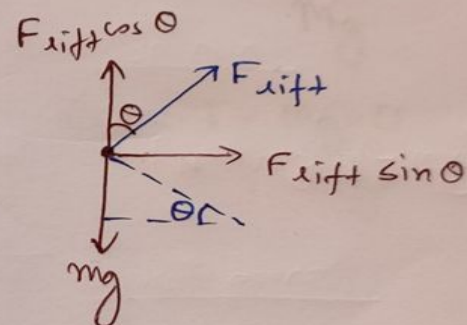 F lift cos θ
F lift
θ
F lift sin θ
θ
mg